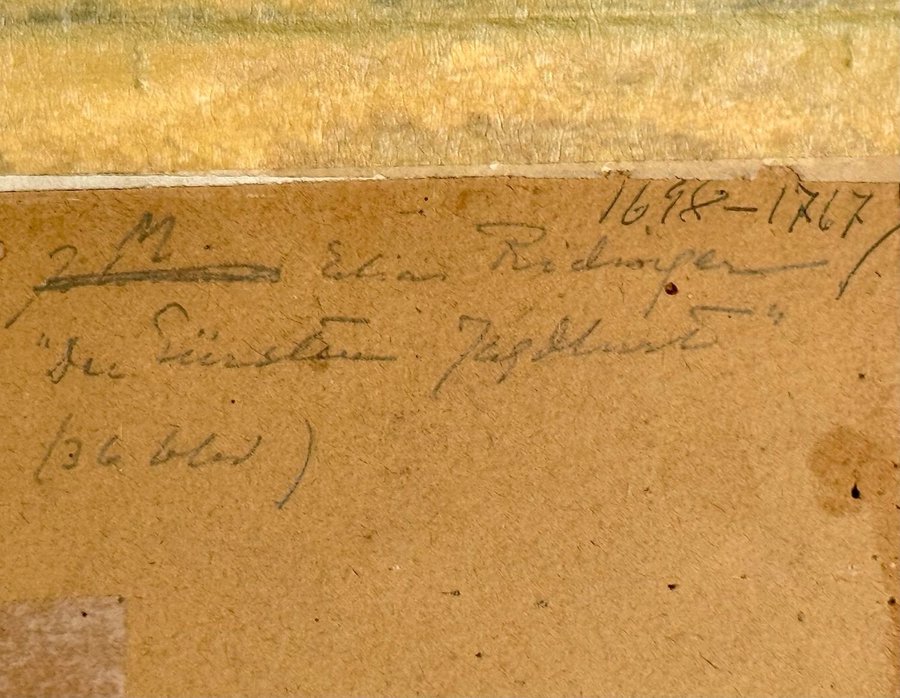 1698-1767)
J M. Elias Ridinger
"Der Fürsten Jagdlust"
(36 blad)